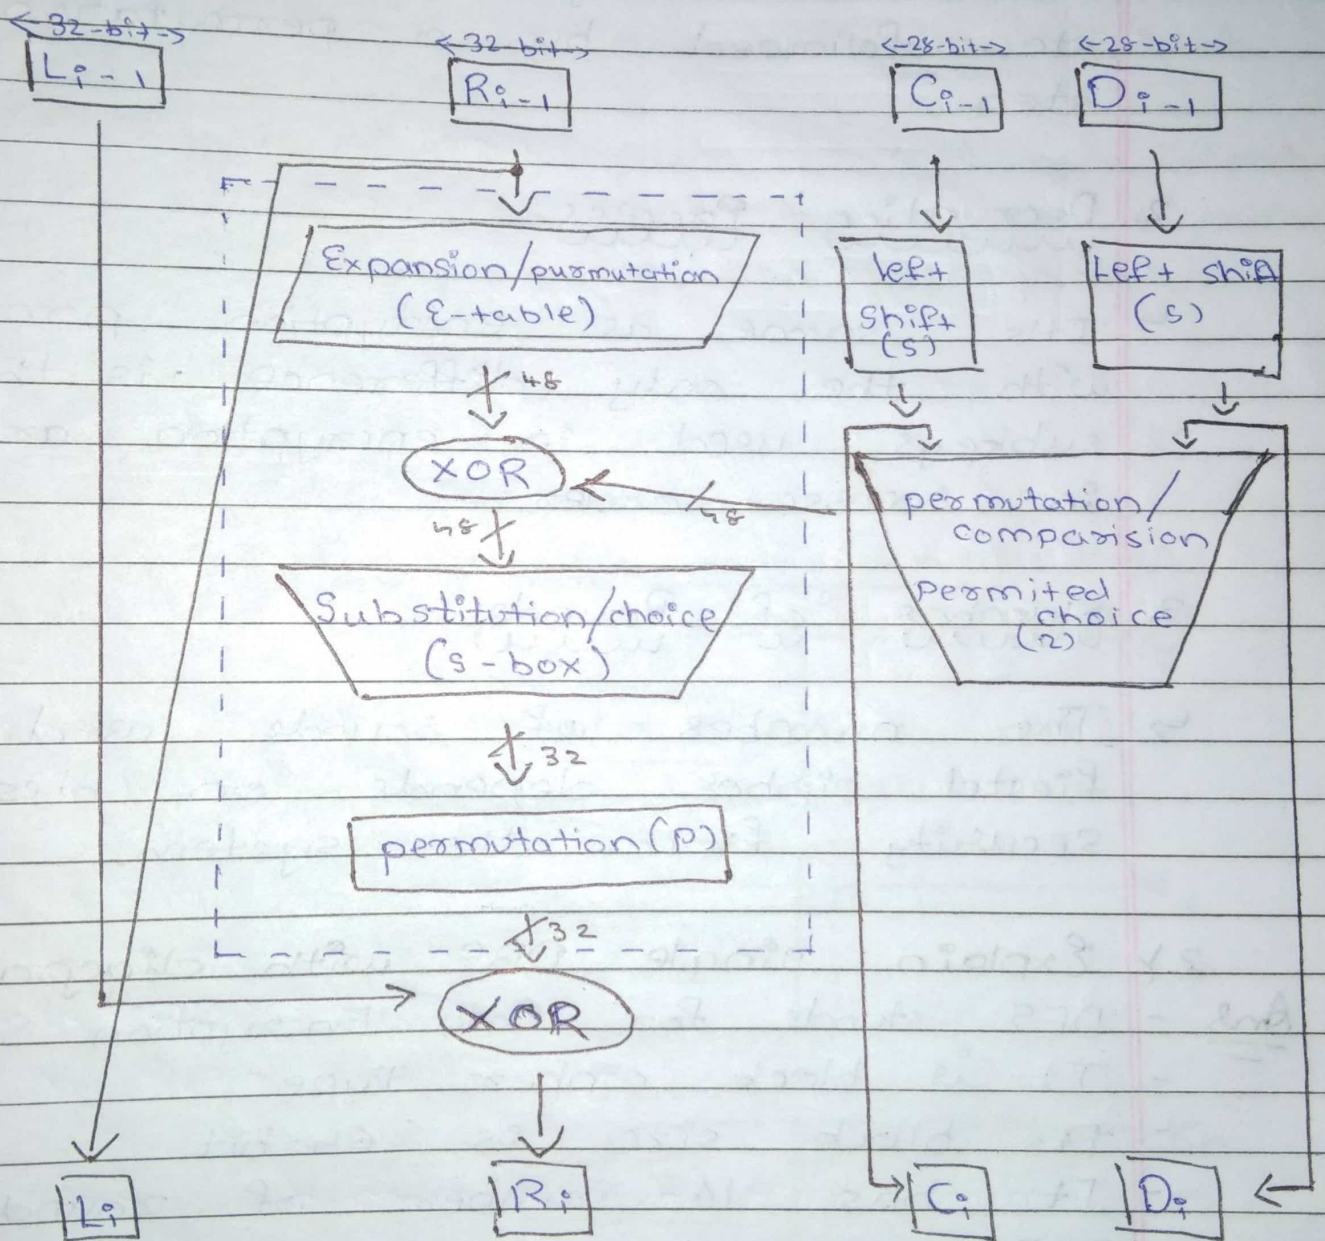 32-bit
32-bit
28-bit
28-bit
Li-1
Ri-1
Ci-1
Di-1
Expansion/purmutation
(E-table)
left
shift
(s)
Left shift
(s)
48
XOR
48
48
permutation/
comparision
permited
choice
(2)
Substitution/choice
(s-box)
32
permutation (p)
32
XOR
Li
Ri
Ci
Di